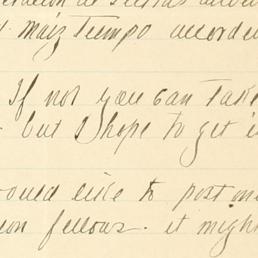 maiz Tiempo
If not you can take
but I hope to get i
ould like to post m
fellows. it migh